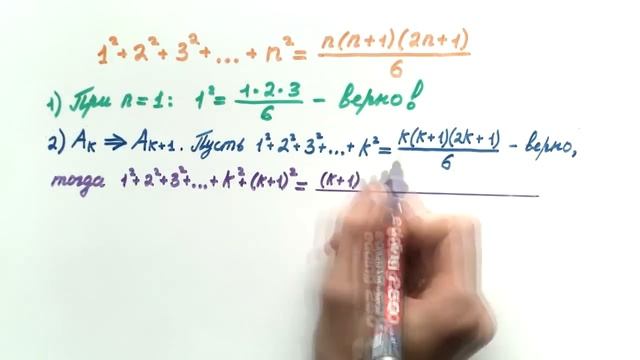 1²+2²+3²+...+n² = n(n+1)(2n+1)/6
1) При n=1: 1² = 1·2·3/6 - верно!
2) Aₖ ⇒ Aₖ₊₁. Пусть 1²+2²+3²+...+k² = k(k+1)(2k+1)/6 - верно,
тогда 1²+2²+3²+...+k²+(k+1)² = (k+1)